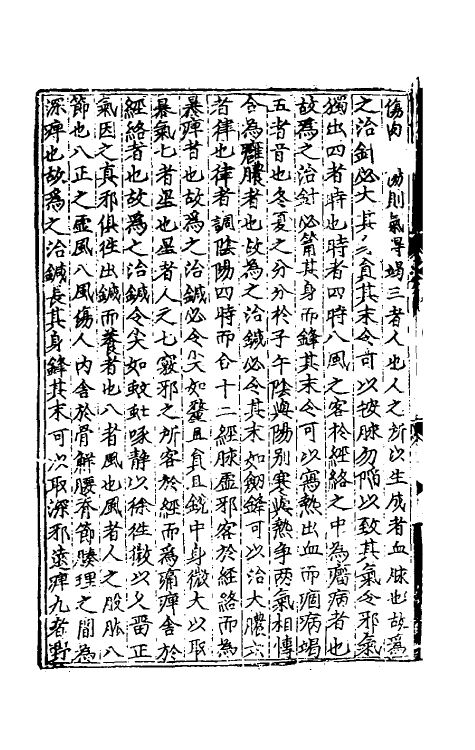 傷肉則氣得竭三者人也人之所以生成者血脉也故爲
之治針必大其身而員其末令可以按脉勿陷以致其氣令邪氣
獨出四者時也時者四時八風之客於經絡之中為瘤病者也
故爲之治針必筩其身而鋒其末令可以寫熱出血而痼病竭
五者音也冬夏之分分於子午陰與陽別寒與熱争兩氣相愽
合為癰膿者也故為之治鍼必令其末如劔鋒可以治大膿六
者律也律者調陰陽四時而合十二經脉虛邪客於經絡而為
暴痺者也故爲之治鍼必令尖如氂且員且銳中身微大以取
暴氣七者星也星者人之七竅邪之所客於經而爲痛痺舍於
經絡者也故爲之治鍼令尖如蚊虻喙静以徐徃微以久留正
氣因之真邪俱徃出鍼而養者也八者風也風者人之股肱八
節也八正之虛風八風傷人内舍於骨解腰脊節腠理之間為
深痺也故爲之治鍼長其身鋒其末可以取深邪遠痺九者野